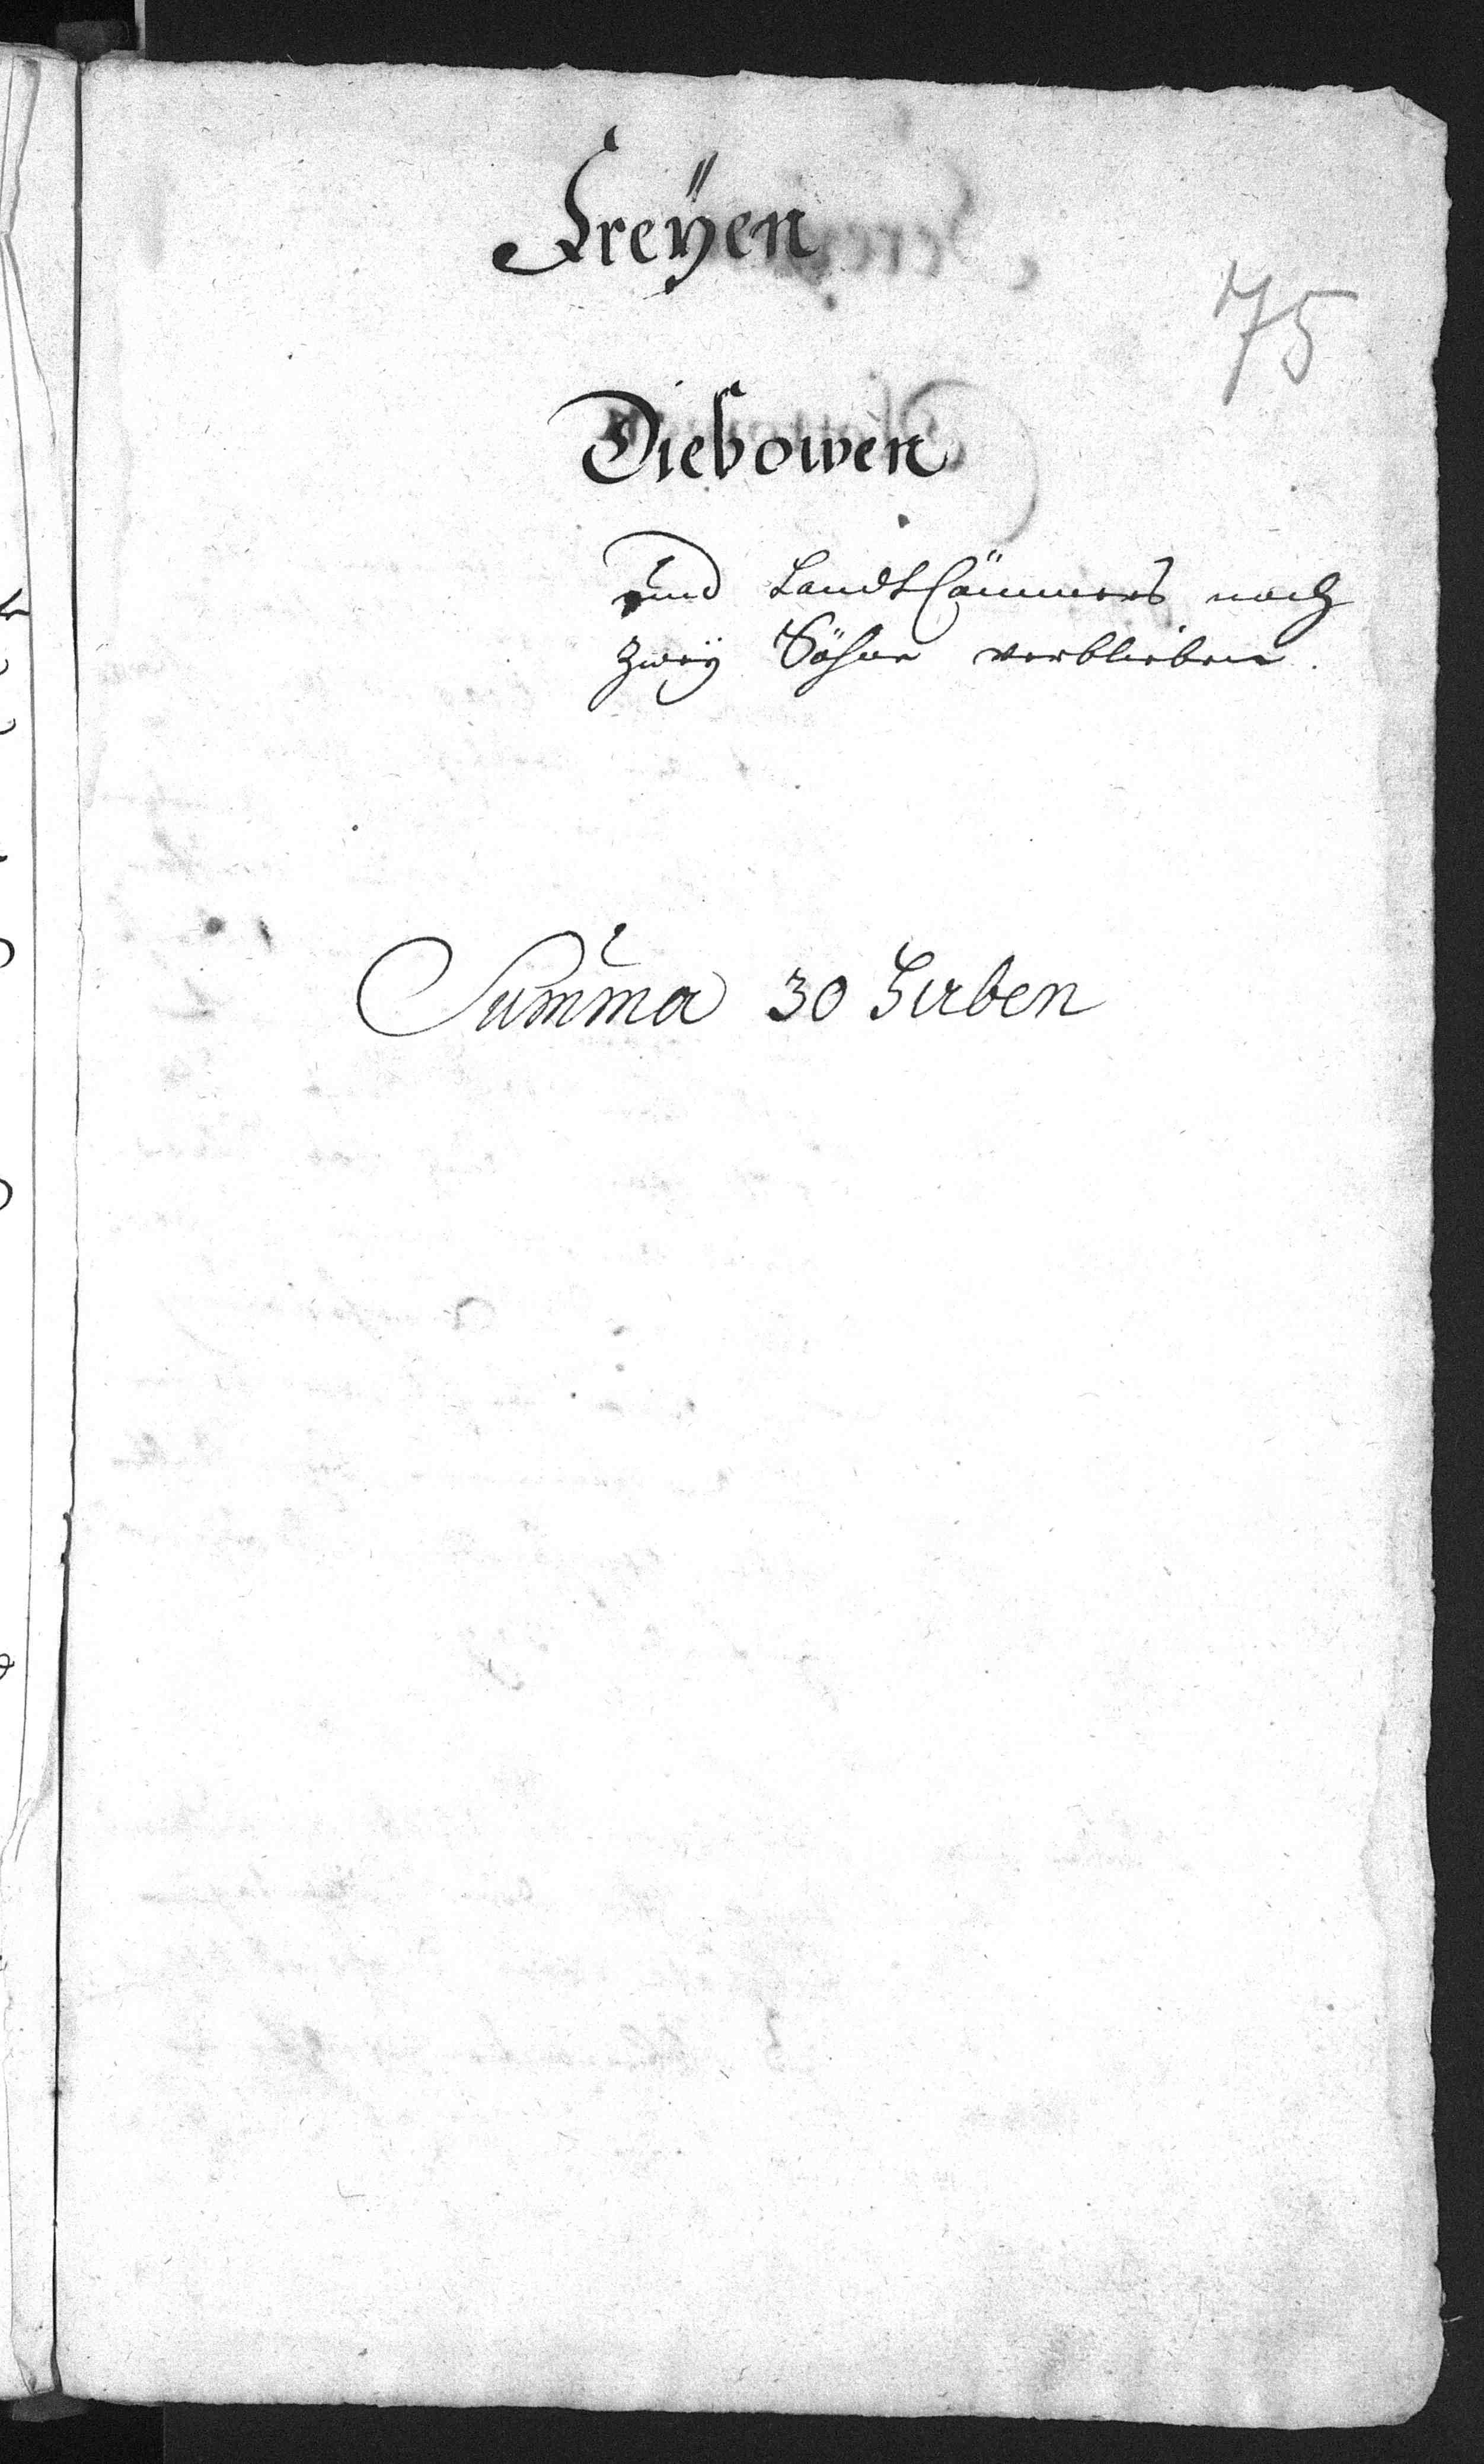 Freÿen
75
Diebowen
und Landt Cämmers noch
zweÿ Söhne verblieben.
Summa 30 Huben